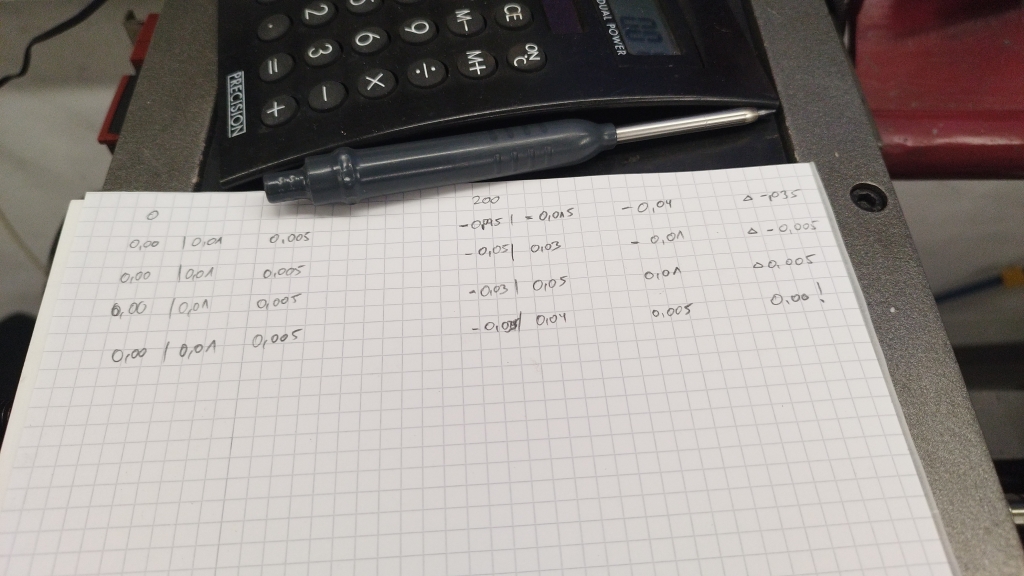 CE
M-
9
6
2
.
DUAL POWER
ON/C
M+
÷
×
3
=
-
+
PRECISION
0 200
0,00 | 0,01 0,005 | = 0,015 -0,04 Δ -,035
0,00 | 0,01 0,005 -0,05 | 0,03 -0,01 Δ -0,005
0,00 | 0,01 0,005 -0,03 | 0,05 0,01 Δ 0,005
0,00 | 0,01 0,005 0,04 0,005 0,00!